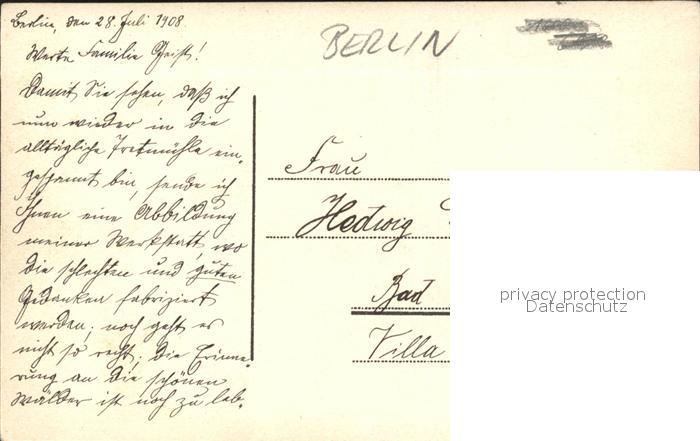 Berlin, den 28. Juli 1908.
BERLIN
Werte Familie Geist!
Damit Sie sehen, daß ich
nun wieder in die
alltägliche Tretmühle ein-
gespannt bin, sende ich
Ihnen eine Abbildung
meiner Werkstatt, wo
die schlechten und guten
Gedanken fabriziert
werden; noch geht es
nicht so recht; die Erinne-
rung an die schönen
Wälder ist noch zu leb.
Frau
Hedwig
Bad
Villa
privacy protection
Datenschutz